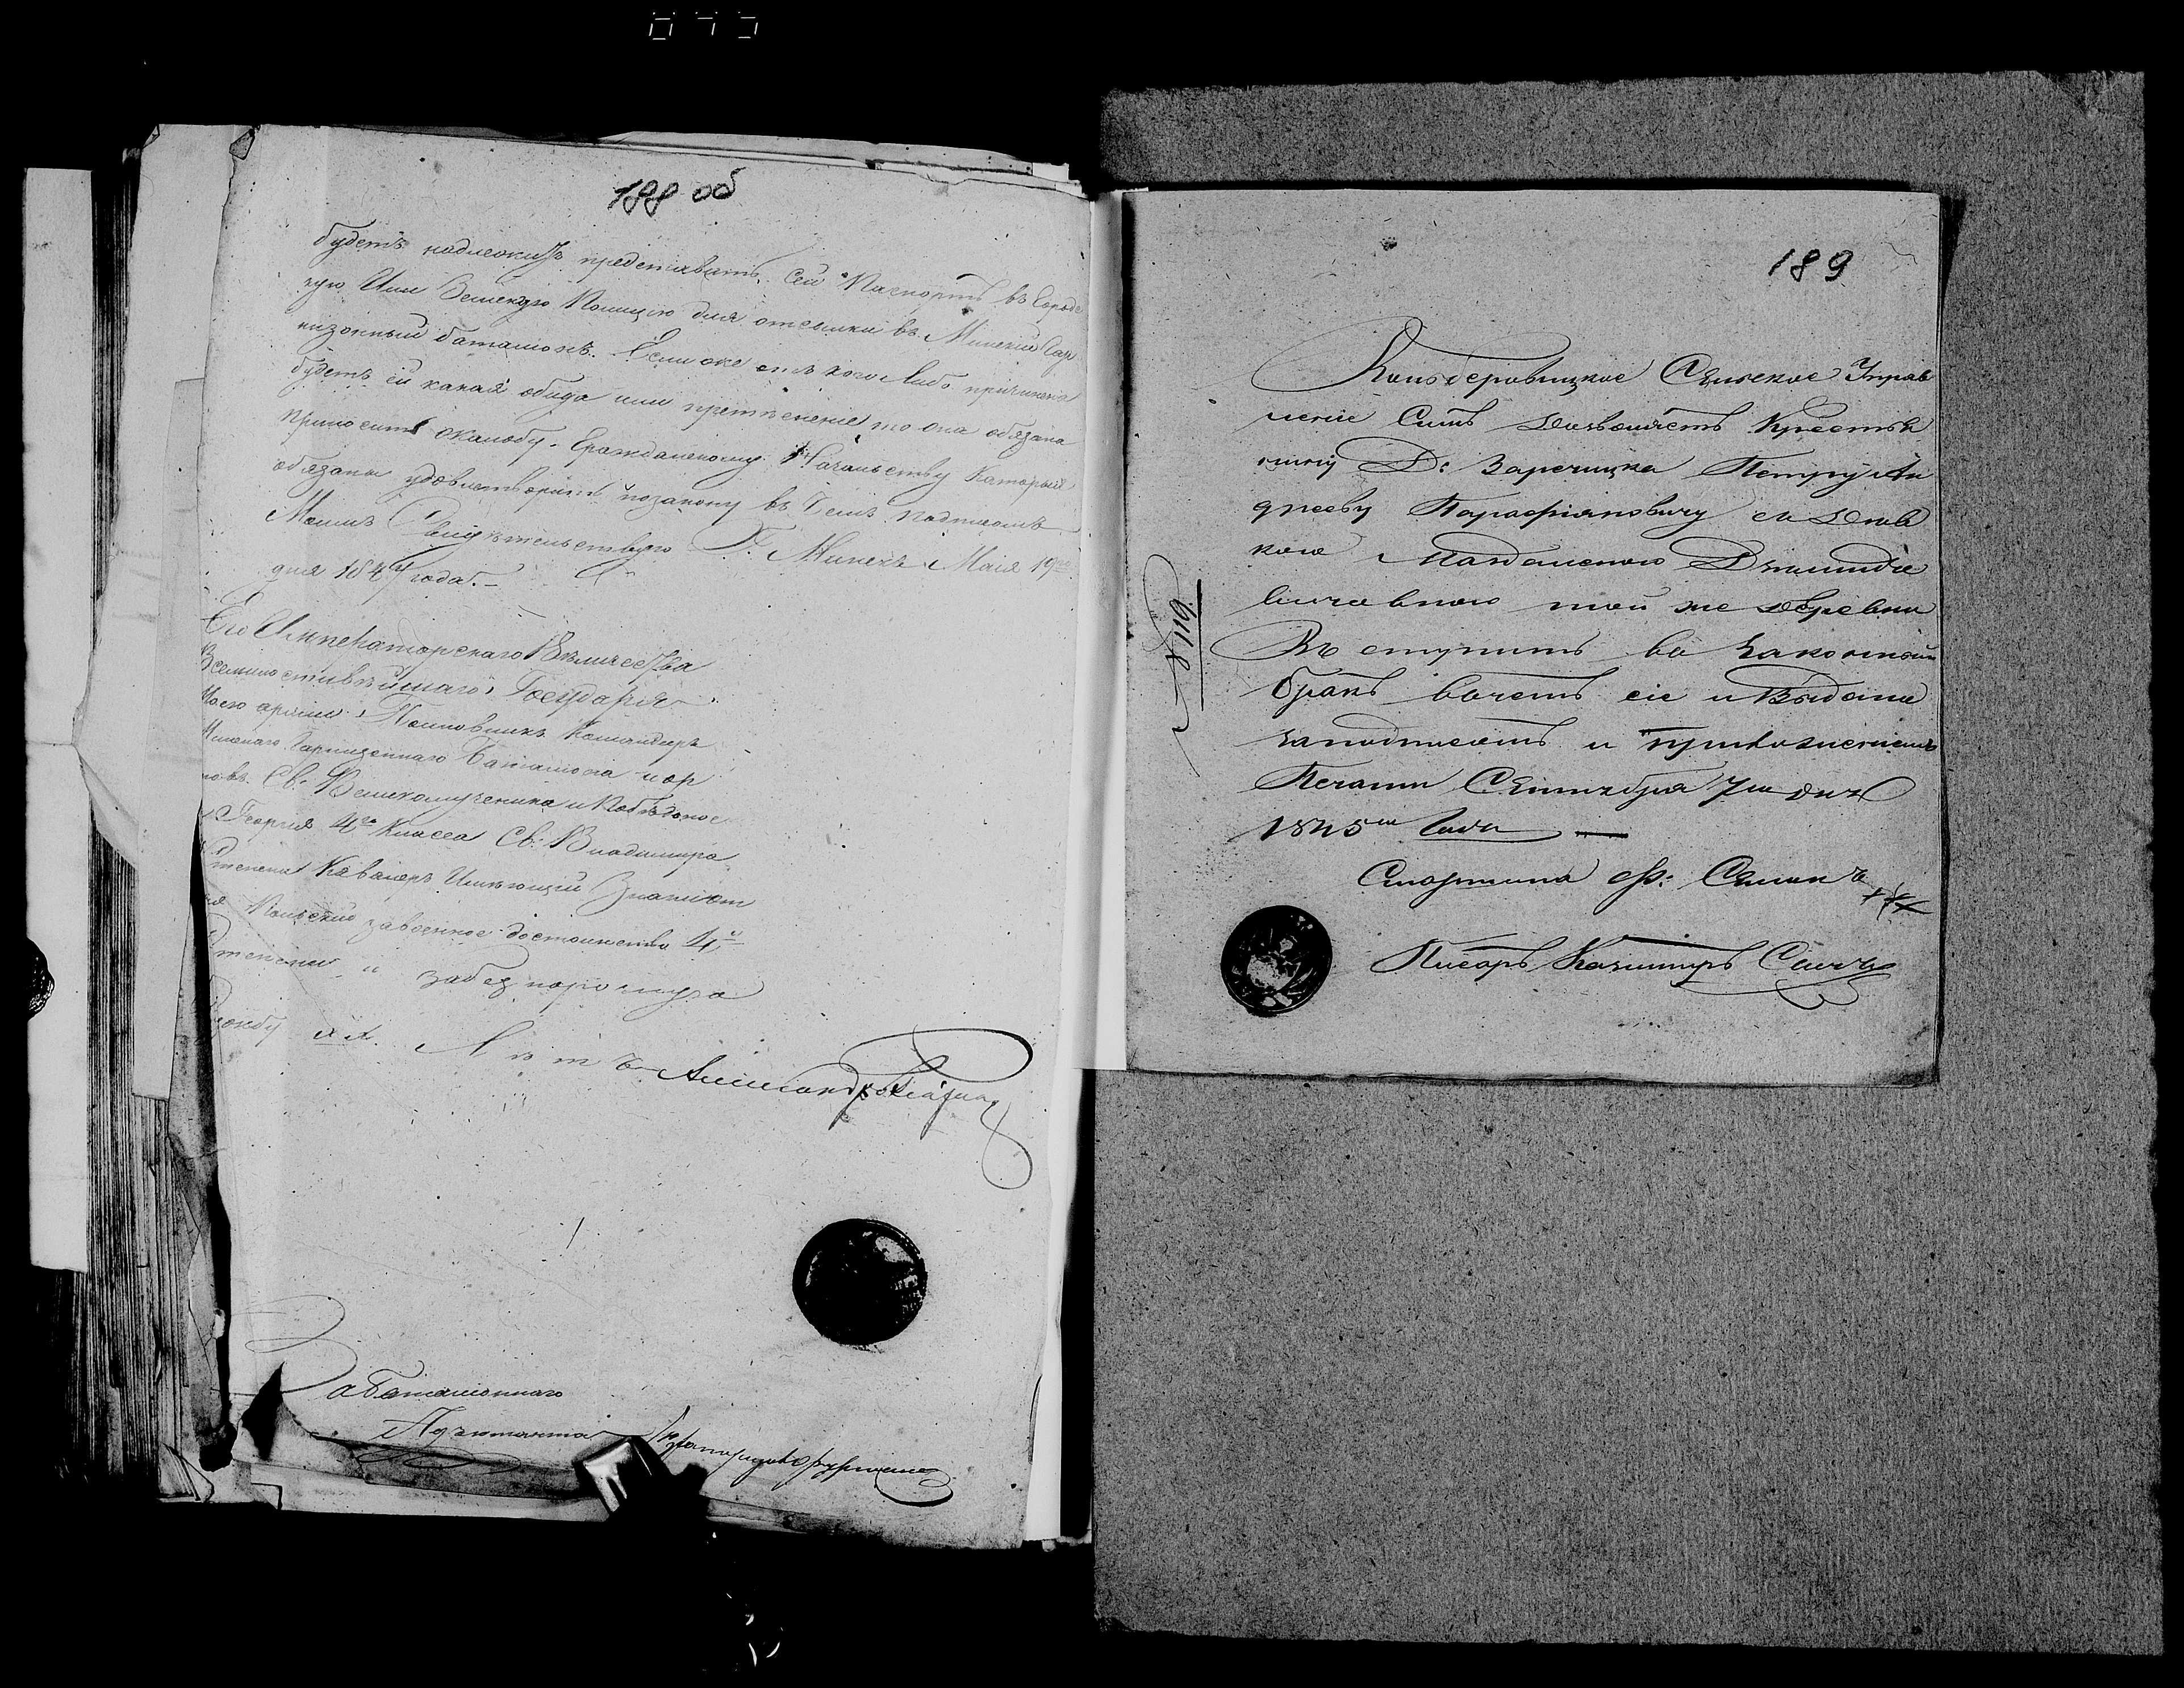 188 об
будетъ надлежитъ представить сей Пашпортъ въ Городс
кую Или Земскую Полицию для отсылки въ Минский Гар
низонный баталионъ. Если же отъ кого либо причинена
будетъ ей какая обида или притеснение то она обязана
приносить жалобу. Гражданскому Начальству Которые
обязаны удовлетворить позакону въ Чемъ подписомъ
Моимъ Свидетельствую Г. Минскъ Маiя 19го
дня 1844 года.
Его Императорскаго Величества
Всемилостивѣйшаго Государя
Моего армии Полковникъ Командиръ
Минскаго Гарнизоннаго Баталиона и ор
новъ Св: Великомученика и Победонос
Георгия 4го Класса Св: Владимира
степени Кавалеръ Имеющий Знакиот
Польский завоенное достоинство 4й
степени и забезпорочную
службу лѣтъ Александръ
За Баталионнаго
Адъютанта
189
Сельское Управ
ление Симъ дозволяетъ Крестья
нину Д: Заречицка Петру Ан
дрееву Парафiяновичу съ дѣв
кою Магдаленою
той же деревни
Въ ступить во Законный
бракъ вочемъ сiе и Выдано
заподписомъ и приложениемъ
Печати Сентября 7го дня
1845го Года
Старшина Семенъ +++
Писарь Казимиръ
№ 119.